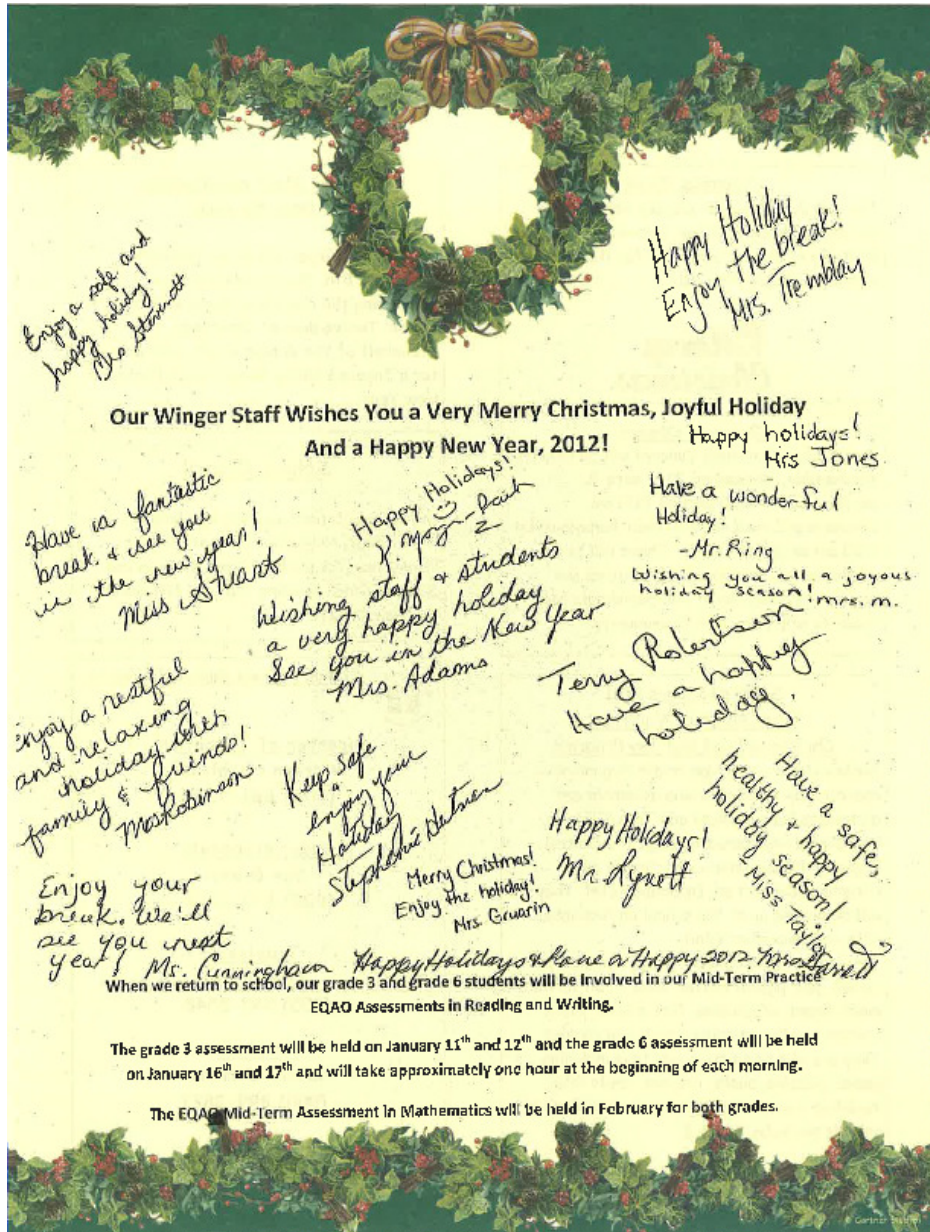 Happy Holiday
Enjoy the break!
Mrs. Tremblay
Enjoy a safe and
happy holiday!
Our Winger Staff Wishes You a Very Merry Christmas, Joyful Holiday
And a Happy New Year, 2012!
Happy holidays!
Mrs Jones
Have a fantastic
break & see you
in the new year!
Miss Stuart
Happy Holidays!
Have a wonderful
Holiday!
-Mr. Ring
Wishing you all a joyous
holiday season! mrs. m.
Wishing staff & students
a very happy holiday
See you in the New Year
Mrs. Adams
Terry Robertson
Have a happy
holiday.
Enjoy a restful
and relaxing
holiday with
family & friends!
Keep Safe
enjoy your
Holiday
Stephanie
Have a safe,
healthy + happy
holiday season!
Miss Taylor
Happy Holidays!
Mr. Lynett
Merry Christmas!
Enjoy the holiday!
Mrs. Gruarin
Enjoy your
break. We'll
see you next
year! Ms. Cunningham
Happy Holidays & Have a Happy 2012
When we return to school, our grade 3 and grade 6 students will be involved in our Mid-Term Practice
EQAO Assessments in Reading and Writing.
The grade 3 assessment will be held on January 11th and 12th and the grade 6 assessment will be held
on January 16th and 17th and will take approximately one hour at the beginning of each morning.
The EQAO Mid-Term Assessment in Mathematics will be held in February for both grades.